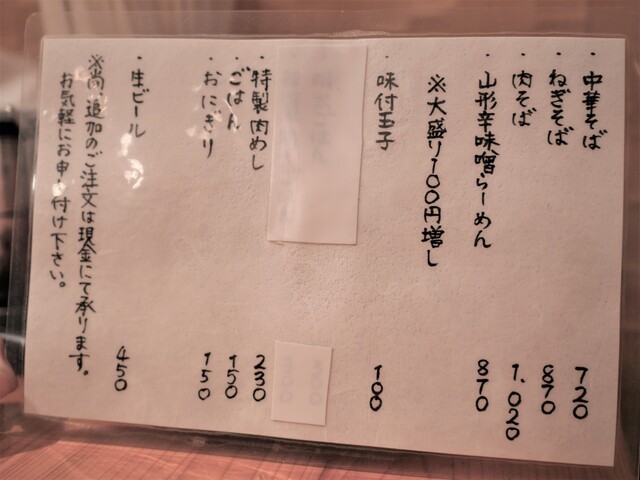 ・中華そば 720
・ねぎそば 870
・肉そば 1,020
・山形辛味噌らーめん 870
※大盛り100円増し
・味付玉子 100
・特製肉めし 230
・ごはん 150
・おにぎり 150
・生ビール 450
※尚、追加のご注文は現金にて承ります。
お気軽にお申し付け下さい。